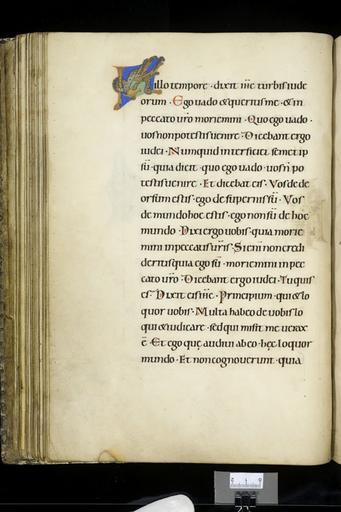 In illo tempore · dixit ihc turbis iude
orum · Ego uado & queritis me · & in
peccato uro moriemini · Quo ego uado ·
uos non potestis uenire · Dicebant ergo
iudei · Numquid interficiet semet ip
sū · quia dicit · quo ego uado · uos n̄ po
testis uenire · Et dicebat eis · Vos de de
orsum estis · ego de supernis sū · Vos
de mundo hoc estis · ego non sū de hoc
mundo · Dixi ergo uobis · quia morie
mini in peccatis uris · Si eni non credi
deritis quia ego sū · moriemini in pec
cato uro · Dicebant ergo iudei · Tu quis
es · Dixit eis ihc · Principium · qui & lo
quor uobis · Multa habeo de uobis lo
qui & iudicare · sed qui misit me uerax
ē · Et ego quę audiui ab eo · hęc loquor
mundo · Et non cognouerunt · quia